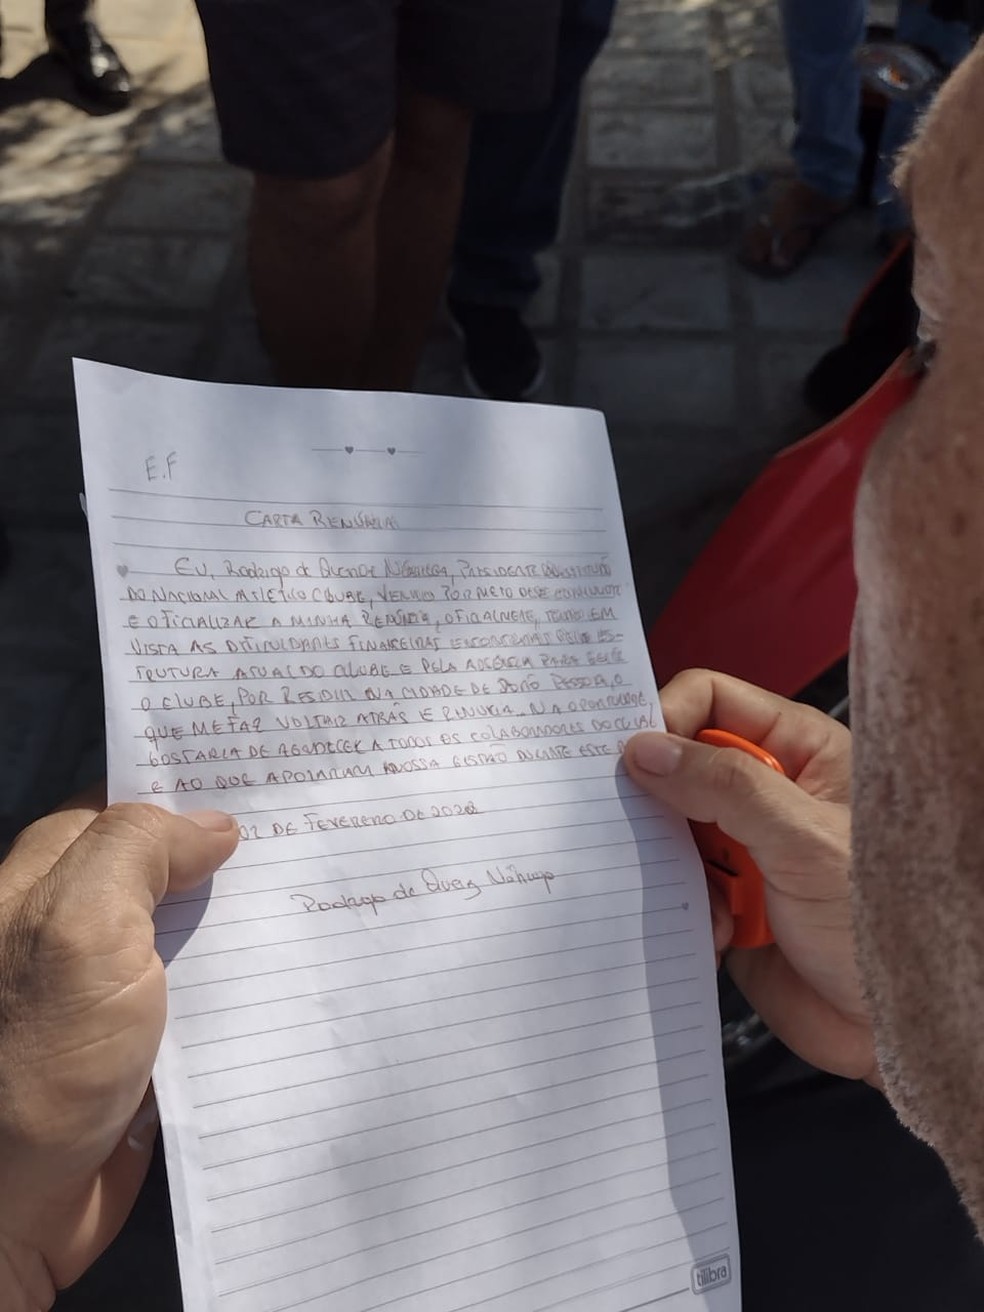 E.F
CARTA RENÚNCIA
EU, Rodrigo de Queiroz Nóbrega, PRESIDENTE CONSTITUÍDO
DO NACIONAL ATLÉTICO CLUBE, VENHO POR MEIO DESE
E OFICIALIZAR A MINHA RENÚNCIA, OFICIALMENTE, TENDO EM
VISTA AS DIFICULDADES FINANCEIRAS ENCONTRADAS PELA ES-
TRUTURA ATUAL DO CLUBE E PELA AUSÊNCIA PARA GERIR
O CLUBE, POR RESIDIR NA CIDADE DE JOÃO PESSOA, O
QUE ME FAZ VOLTAR ATRÁS E RENUNCIAR. NA OPORTUNIDADE,
GOSTARIA DE AGRADECER A TODOS OS COLABORADORES DO CLUBE
E AO QUE APOIARAM NOSSA GESTÃO DURANTE ESTE
02 DE FEVEREIRO DE 2023
Rodrigo de Queiroz Nóbrega
tilibra